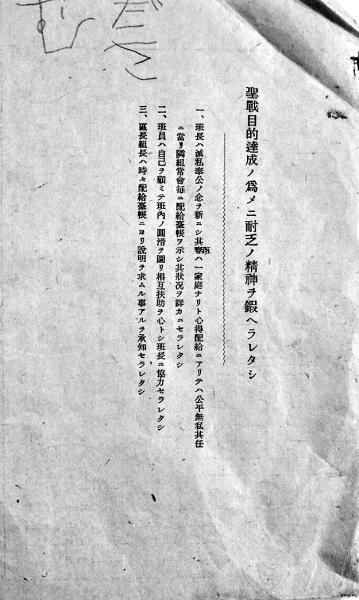 聖戰目的達成ノ爲メニ耐乏ノ精神ヲ鍛ヘラレタシ
一、班長ハ滅私奉公ノ念ヲ新ニシ其班ハ一家庭ナリト心得配給ニアリテハ公平無私其任
ニ當リ隣組常會毎ニ配給臺帳ヲ示シ其狀況ヲ詳カニセラレタシ
二、班員ハ自己ヲ顧ミテ班內ノ圓滑ヲ圖リ相互扶助ヲ心トシ班長ニ協力セラレタシ
三、區長組長ハ時々配給臺帳ニヨリ說明ヲ求ムル事アルヲ承知セラレタシ